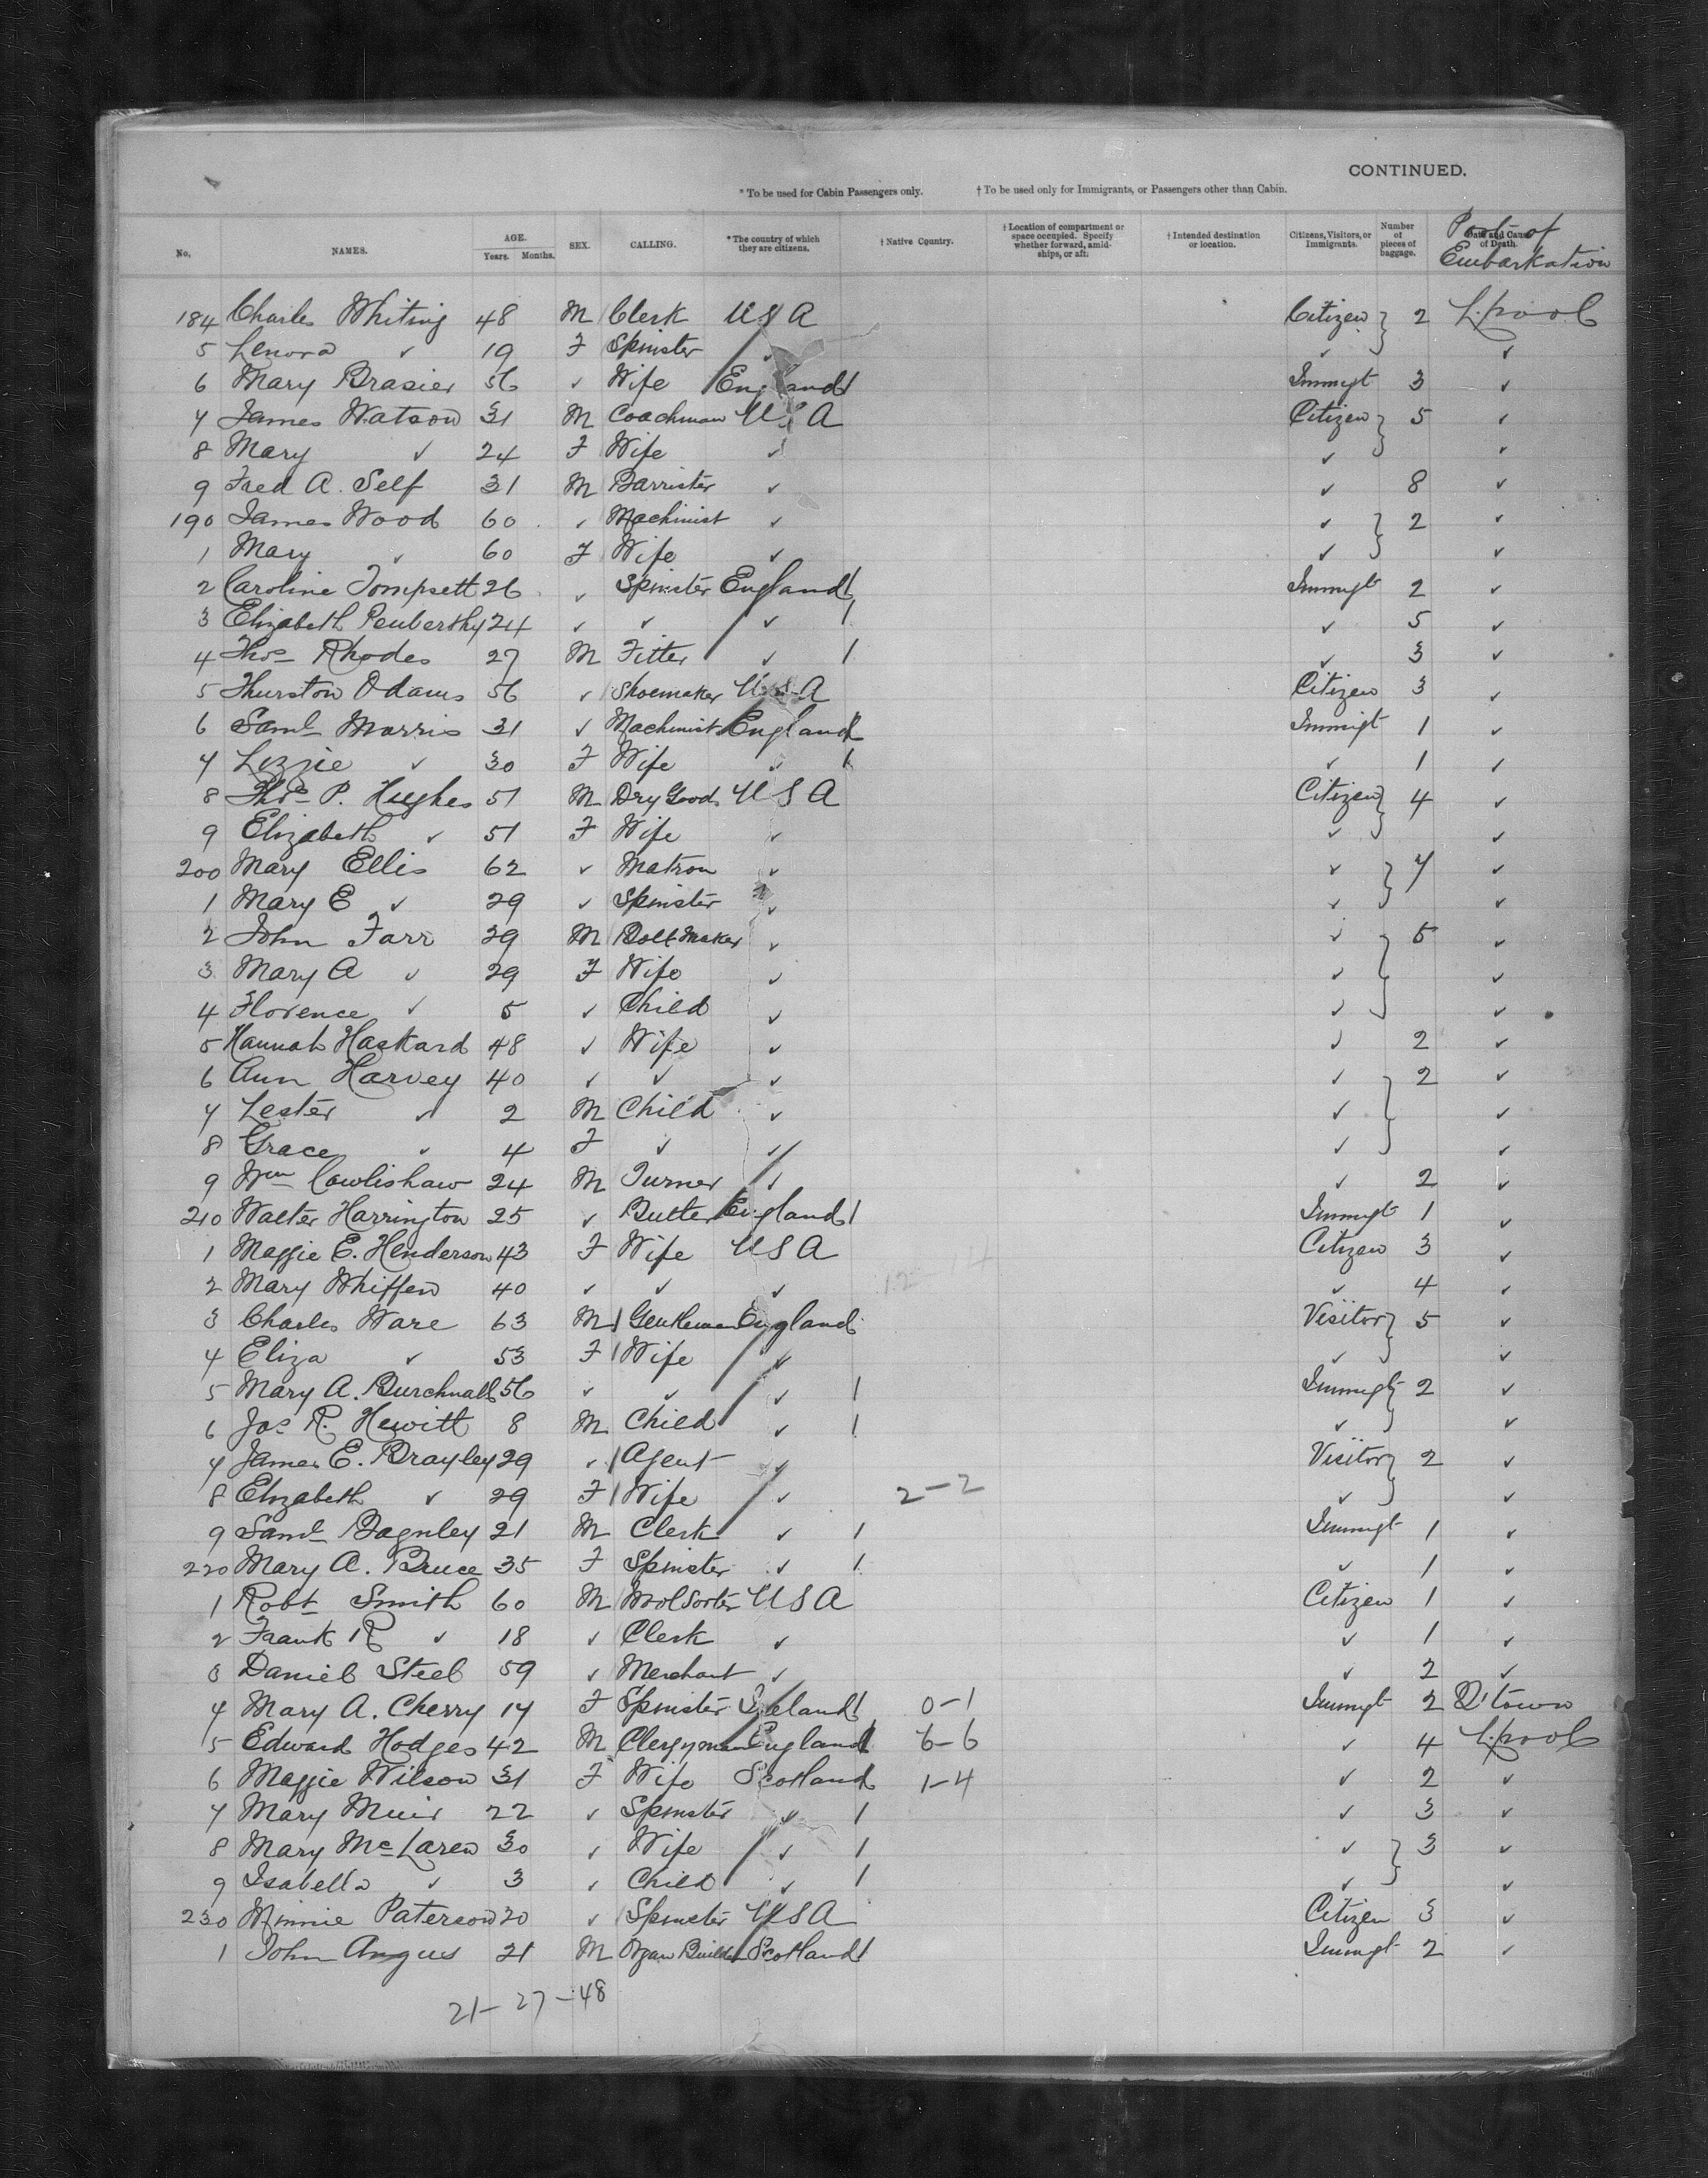 CONTINUED.
* To be used for Cabin Passengers only. † To be used only for Immigrants, or Passengers other than Cabin.
No. NAMES. AGE. Years. Months. SEX. CALLING. * The country of which they are citizens. † Native Country. † Location of compartment or space occupied. Specify whether forward, amidships, or aft. † Intended destination or location. Citizens, Visitors, or Immigrants. Number of pieces of baggage. Date and Cause of Death. Port of Embarkation
184 Charles Whiting 48 M Clerk USA Citizen } 2 L.pool
5 Lenora ✓ 19 F Spinster ✓ ✓ ✓
6 Mary Brasier 56 ✓ Wife England 1 Immigt 3 ✓
7 James Watson 31 M Coachman USA Citizen } 5 ✓
8 Mary ✓ 24 F Wife ✓ ✓ ✓
9 Fred A. Self 31 M Barrister ✓ ✓ 8 ✓
190 James Wood 60 ✓ Machinist ✓ ✓ } 2 ✓
1 Mary ✓ 60 F Wife ✓ ✓ ✓
2 Caroline Tompsett 26 ✓ Spinster England 1 Immigt 2 ✓
3 Elizabeth Penberthy 24 ✓ ✓ ✓ 1 ✓ 5 ✓
4 Thos Rhodes 27 M Fitter ✓ 1 ✓ 3 ✓
5 Thurston Odams 56 ✓ Shoemaker USA Citizen 3 ✓
6 Saml Morris 31 ✓ Machinist England 1 Immigt 1 ✓
7 Lizzie ✓ 30 F Wife ✓ 1 ✓ 1 ✓
8 Thos P. Hughes 51 M Dry Goods USA Citizen } 4 ✓
9 Elizabeth ✓ 51 F Wife ✓ ✓ ✓
200 Mary Ellis 62 ✓ Matron ✓ ✓ } 7 ✓
1 Mary E ✓ 29 ✓ Spinster ✓ ✓ ✓
2 John Farr 29 M Bolt Maker ✓ ✓ } 5 ✓
3 Mary A ✓ 29 F Wife ✓ ✓ ✓
4 Florence ✓ 5 ✓ Child ✓ ✓ ✓
5 Hannah Haskard 48 ✓ Wife ✓ ✓ 2 ✓
6 Ann Harvey 40 ✓ ✓ ✓ ✓ } 2 ✓
7 Lester ✓ 2 M Child ✓ ✓ ✓
8 Grace ✓ 4 F ✓ ✓ ✓ ✓
9 Wm Cowlishaw 24 M Turner ✓ ✓ 2 ✓
210 Walter Harrington 25 ✓ Butler England 1 Immigt 1 ✓
1 Maggie E. Henderson 43 F Wife USA Citizen 3 ✓
2 Mary Whiffen 40 ✓ ✓ ✓ ✓ 4 ✓
3 Charles Ware 63 M Gentleman England Visitor } 5 ✓
4 Eliza ✓ 53 F Wife ✓ ✓ ✓
5 Mary A. Burchnall 56 ✓ ✓ ✓ 1 Immigt } 2 ✓
6 Jas R. Hewitt 8 M Child ✓ 1 ✓ ✓
7 James E. Brayley 29 ✓ Agent ✓ Visitor } 2 ✓
8 Elizabeth ✓ 29 F Wife ✓ 2-2 ✓ ✓
9 Saml Bagnley 21 M Clerk ✓ 1 Immigt 1 ✓
220 Mary A. Bruce 35 F Spinster ✓ 1 ✓ 1 ✓
1 Robt Smith 60 M Wool Sorter USA Citizen 1 ✓
2 Frank R ✓ 18 ✓ Clerk ✓ ✓ 1 ✓
3 Daniel Steel 59 ✓ Merchant ✓ ✓ 2 ✓
4 Mary A. Cherry 17 F Spinster Ireland 1 0-1 Immigt 2 Q'town
5 Edward Hodges 42 M Clergyman England 1 6-6 ✓ 4 L.pool
6 Maggie Wilson 31 F Wife Scotland 1-4 ✓ 2 ✓
7 Mary Muir 22 ✓ Spinster ✓ 1 ✓ 3 ✓
8 Mary McLaren 30 ✓ Wife ✓ 1 ✓ } 3 ✓
9 Isabella ✓ 3 ✓ Child ✓ 1 ✓ ✓
230 Minnie Paterson 20 ✓ Spinster USA Citizen 3 ✓
1 John Angus 21 M Organ Builder Scotland 1 Immigt 2 ✓
21-27-48